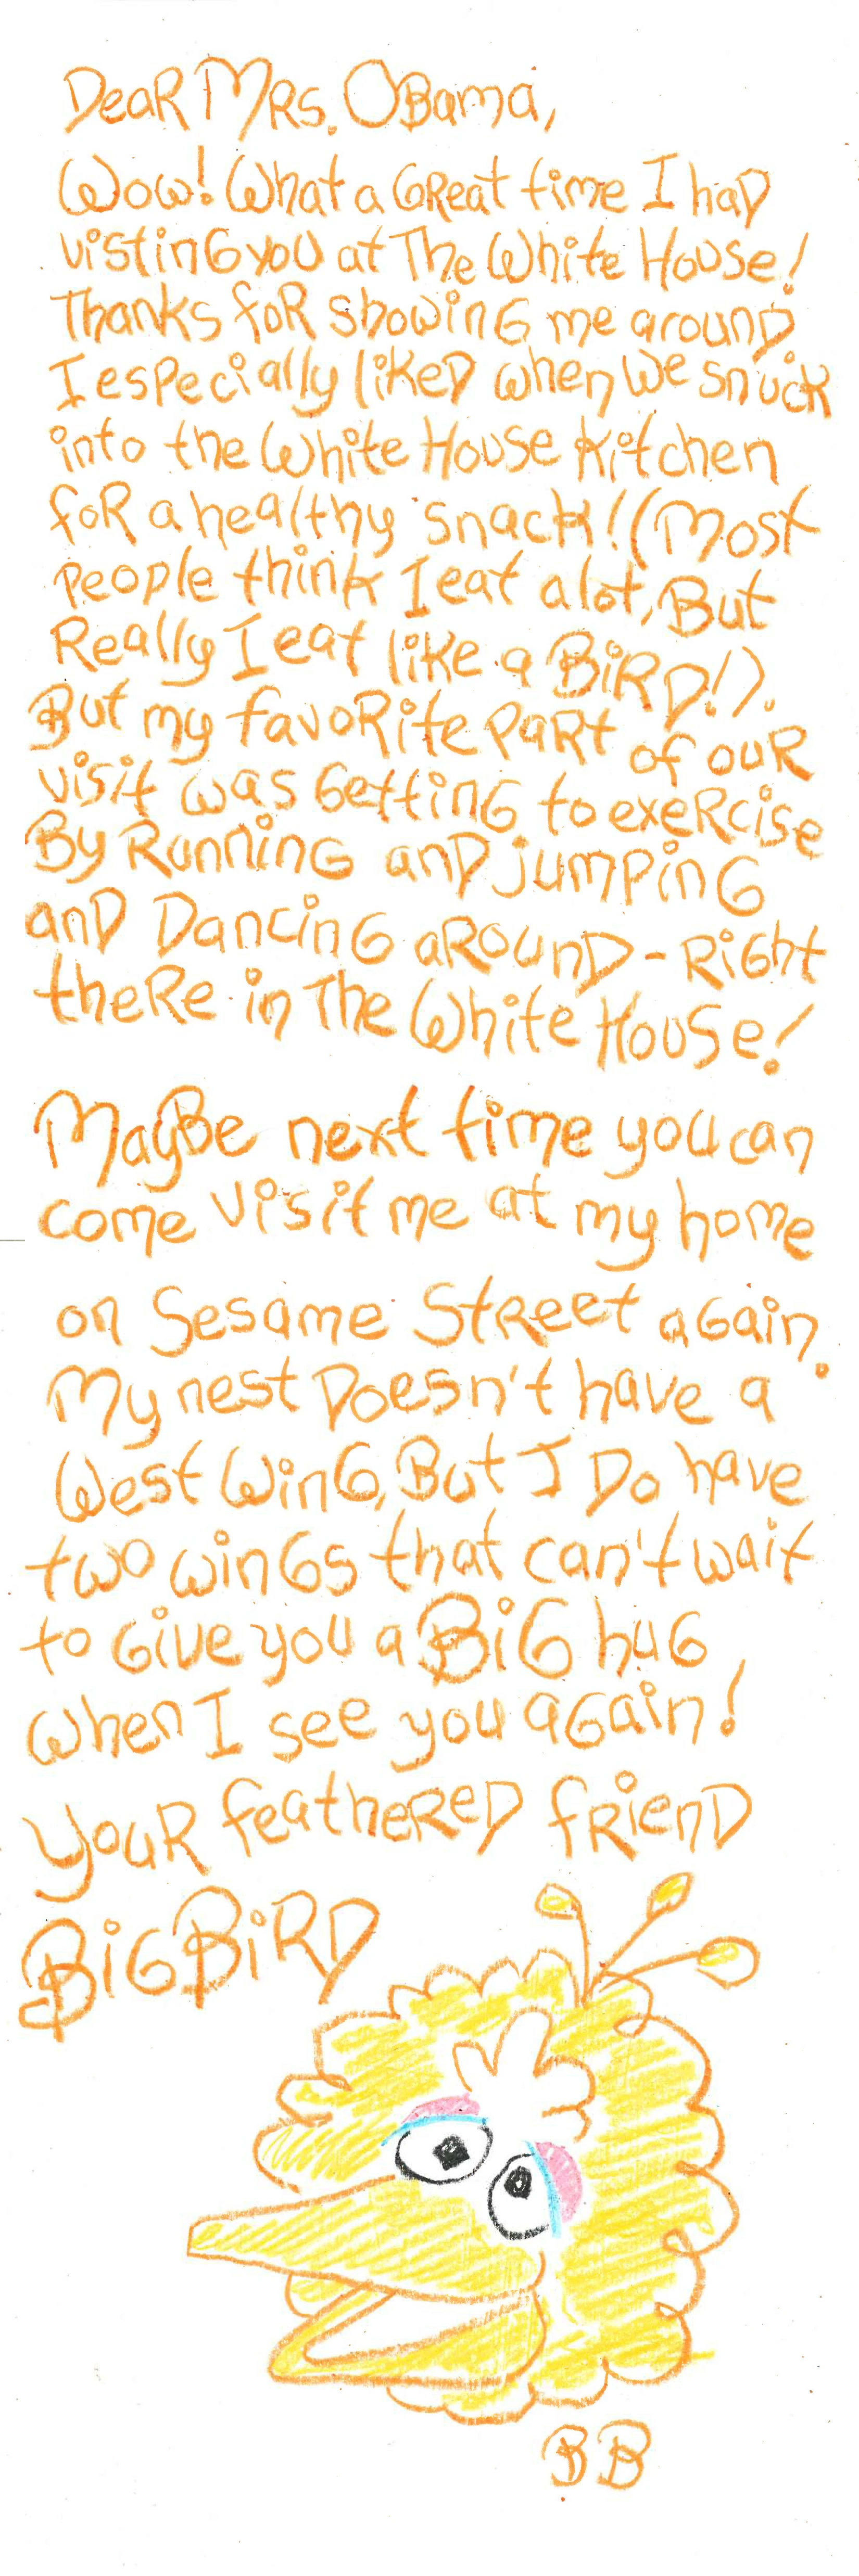 Dear Mrs. Obama,
Wow! What a Great time I had
visting you at The White House!
Thanks for showing me around.
I especially liked when we snuck
into the White House Kitchen
for a healthy snack! (Most
people think I eat alot, But
Really I eat like a BIRD!).
But my favorite part of our
visit was Getting to exercise
By Running and jumping
and Dancing around - Right
there in The White House!
Maybe next time you can
come visit me at my home
on Sesame Street again.
My nest Doesn't have a
West Wing, But I Do have
two wings that can't wait
to Give you a BiG hug
when I see you again!
your feathered friend
BiG BiRD
BB